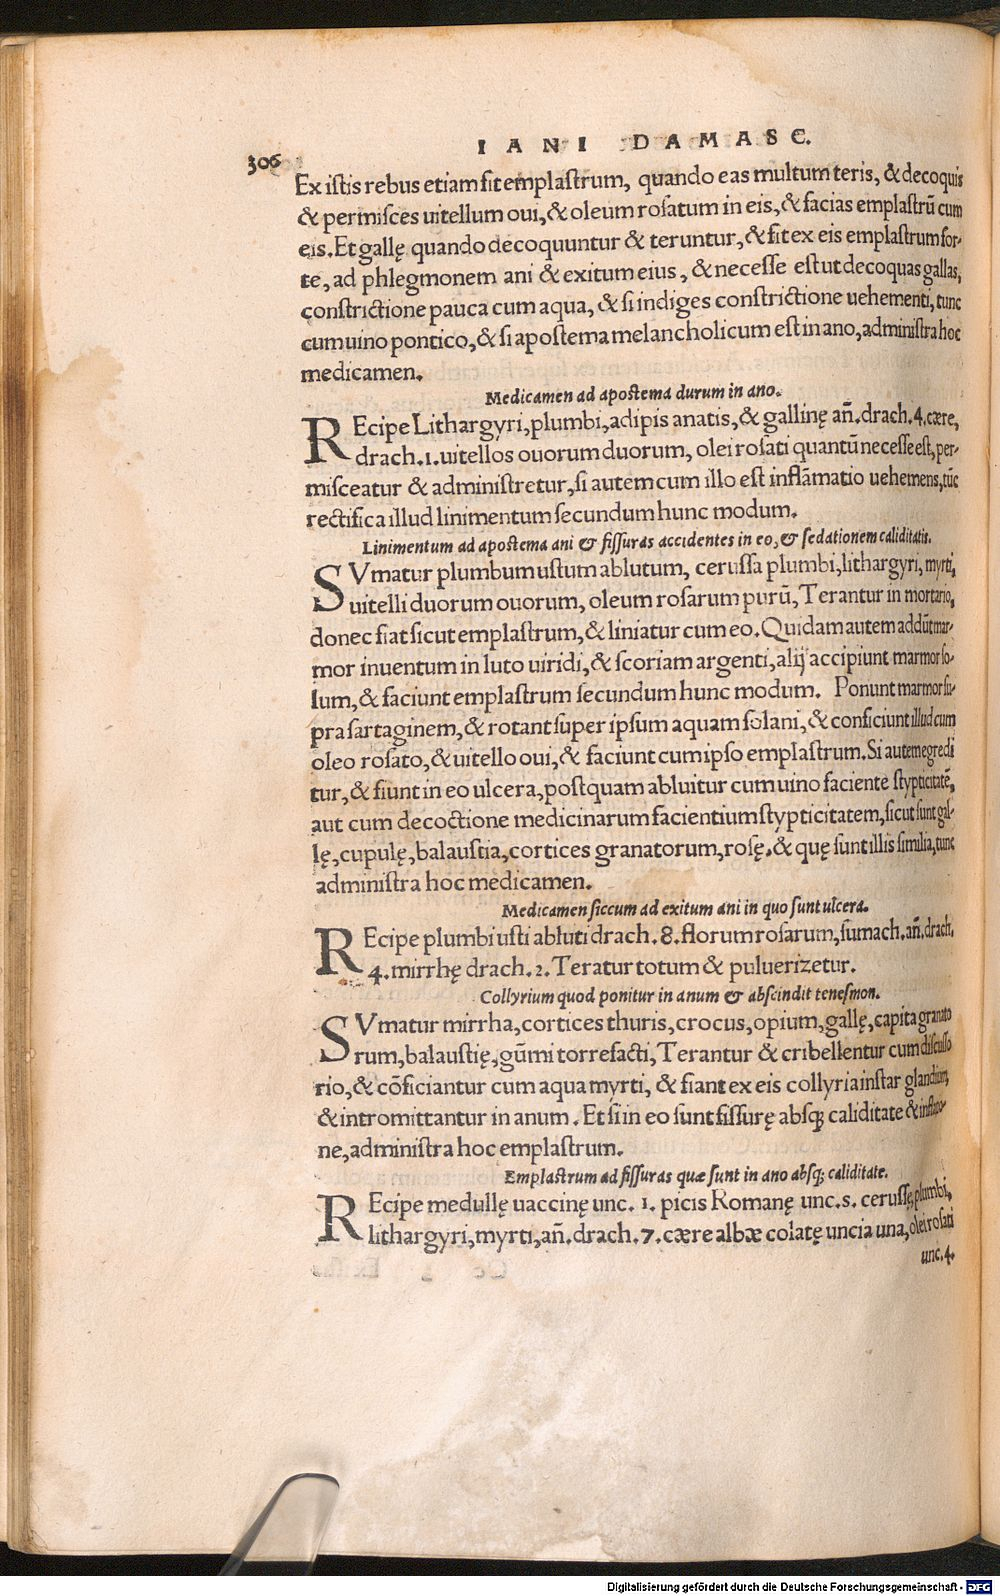 306
IANI DAMASC.
Ex istis rebus etiam fit emplastrum, quando eas multum teris, & decoquis
& permisces uitellum oui, & oleum rosatum in eis, & facias emplastrū cum
eis. Et gallę quando decoquuntur & teruntur, & fit ex eis emplastrum for-
te, ad phlegmonem ani & exitum eius, & necesse est ut decoquas gallas,
constrictione pauca cum aqua, & si indiges constrictione uehementi, tunc
cum uino pontico, & si apostema melancholicum est in ano, administra hoc
medicamen.
Medicamen ad apostema durum in ano.
REcipe Lithargyri, plumbi, adipis anatis, & gallinę añ. drach. 4. cære,
drach. 1. uitellos ouorum duorum, olei rosati quantū necesse est, per-
misceatur & administretur, si autem cum illo est inflāmatio uehemens, tūc
rectifica illud linimentum secundum hunc modum.
Linimentum ad apostema ani & fissuras accidentes in eo, & sedationem caliditatis.
SVmatur plumbum ustum ablutum, cerussa plumbi, lithargyri, myrti,
uitelli duorum ouorum, oleum rosarum purū, Terantur in mortario,
donec fiat sicut emplastrum, & liniatur cum eo. Quidam autem addūt mar-
mor inuentum in luto uiridi, & scoriam argenti, alij accipiunt marmor so-
lum, & faciunt emplastrum secundum hunc modum. Ponunt marmor su-
pra sartaginem, & rotant super ipsum aquam solani, & conficiunt illud cum
oleo rosato, & uitello oui, & faciunt cum ipso emplastrum. Si autem egredi
tur, & fiunt in eo ulcera, postquam abluitur cum uino faciente stypticitatē,
aut cum decoctione medicinarum facientium stypticitatem, sicut sunt gal-
lę, cupulę, balaustia, cortices granatorum, rosę. & quę sunt illis similia, tunc
administra hoc medicamen.
Medicamen siccum ad exitum ani in quo sunt ulcera.
REcipe plumbi usti abluti drach. 8. florum rosarum, sumach. añ. drach.
4. mirrhę drach. 2. Teratur totum & puluerizetur.
Collyrium quod ponitur in anum & abscindit tenesmon.
SVmatur mirrha, cortices thuris, crocus, opium, gallę, capita granato
rum, balaustię, gūmi torrefacti, Terantur & cribellentur cum discusso
rio, & cōficiantur cum aqua myrti, & fiant ex eis collyria instar glandium,
& intromittantur in anum. Et si in eo sunt fissurę absq; caliditate & inflatio-
ne, administra hoc emplastrum.
Emplastrum ad fissuras quæ sunt in ano absq; caliditate.
REcipe medullę uaccinę unc. 1. picis Romanę unc. s. cerussę, plumbi,
lithargyri, myrti, añ. drach. 7. cære albæ colatę uncia una, olei rosati
unc. 4.
Digitalisierung gefördert durch die Deutsche Forschungsgemeinschaft - DFG